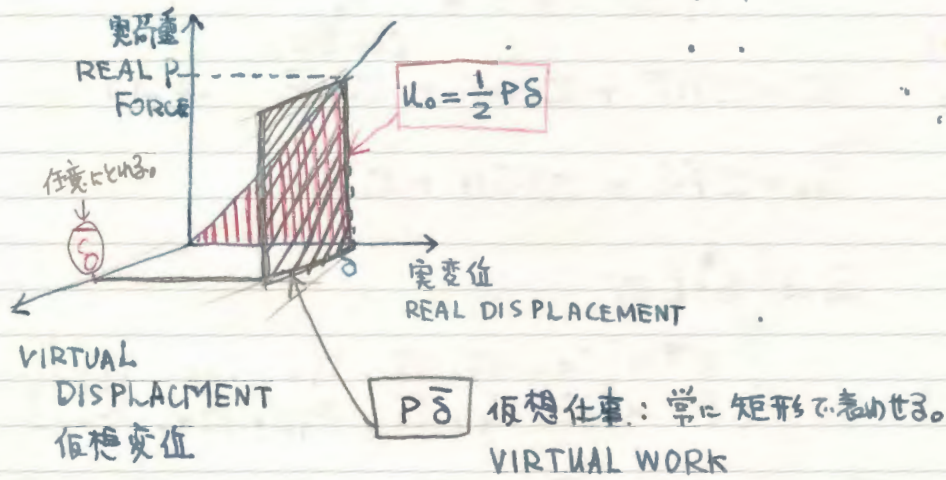 実荷重
REAL P
FORCE
U₀ = 1/2 Pδ
任意にとれる。
δ̄
δ
実変位
REAL DISPLACEMENT
VIRTUAL
DISPLACMENT
仮想変位
Pδ̄ 仮想仕事：常に矩形で表わせる。
VIRTUAL WORK